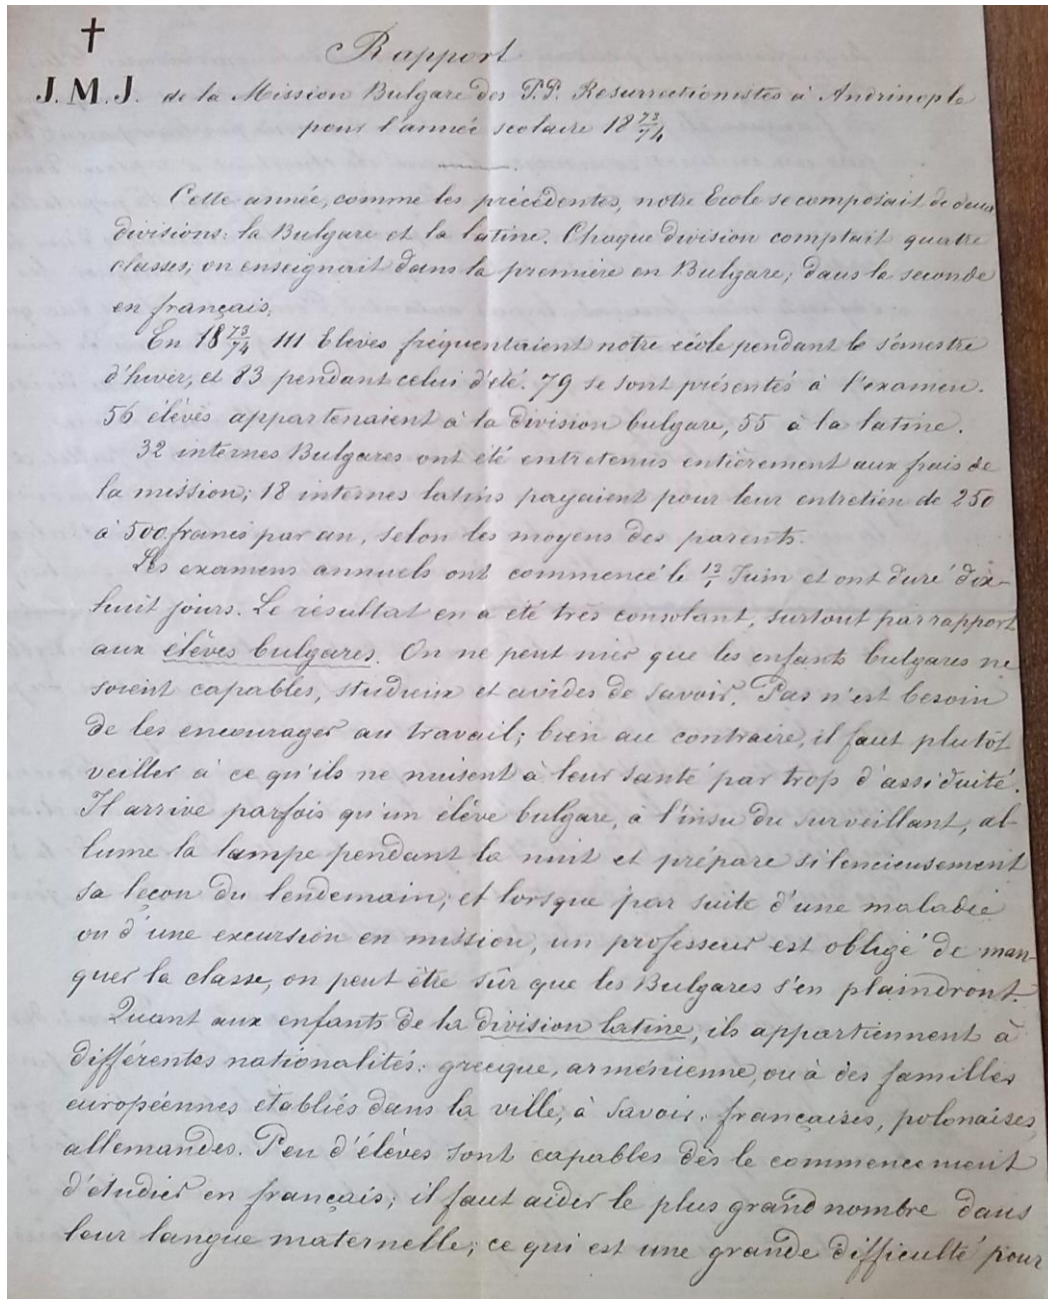 Rapport
J. M. J. de la Mission Bulgare des P.P. Resurrectionistes à Andrinople
pour l'année scolaire 18 73/74
Cette année, comme les précédentes, notre Ecole se composait de deux
divisions: la Bulgare et la latine. Chaque division comptait quatre
classes; on enseignait dans la première en Bulgare; dans la seconde
en français.
En 18 73/74 111 Elèves fréquentaient notre école pendant le sémestre
d'hiver, et 83 pendant celui d'été. 79 se sont présentés à l'examen.
56 élèves appartenaient à la division bulgare, 55 à la latine.
32 internes Bulgares ont été entretenus entièrement aux frais de
la mission; 18 internes latins payaient pour leur entretien de 250
à 500 francs par an, selon les moyens des parents.
Les examens annuels ont commencé le 13/1 Juin et ont duré dix-
huit jours. Le résultat en a été très consolant, surtout par rapport
aux élèves bulgares. On ne peut nier que les enfants bulgares ne
soient capables, studieux et avides de savoir. Pas n'est besoin
de les encourager au travail; bien au contraire, il faut plutôt
veiller à ce qu'ils ne nuisent à leur santé par trop d'assiduité.
Il arrive parfois qu'un élève bulgare, à l'insu du surveillant, al-
lume la lampe pendant la nuit et prépare silencieusement
sa leçon du lendemain; et lorsque par suite d'une maladie
ou d'une excursion en mission, un professeur est obligé de man-
quer la classe, on peut être sûr que les Bulgares s'en plaindront.
Quant aux enfants de la division latine, ils appartiennent à
différentes nationalités: grecque, arménienne, ou à des familles
européennes établies dans la ville, à savoir: françaises, polonaises,
allemandes. Peu d'élèves sont capables dès le commencement
d'étudier en français; il faut aider le plus grand nombre dans
leur langue maternelle; ce qui est une grande difficulté pour